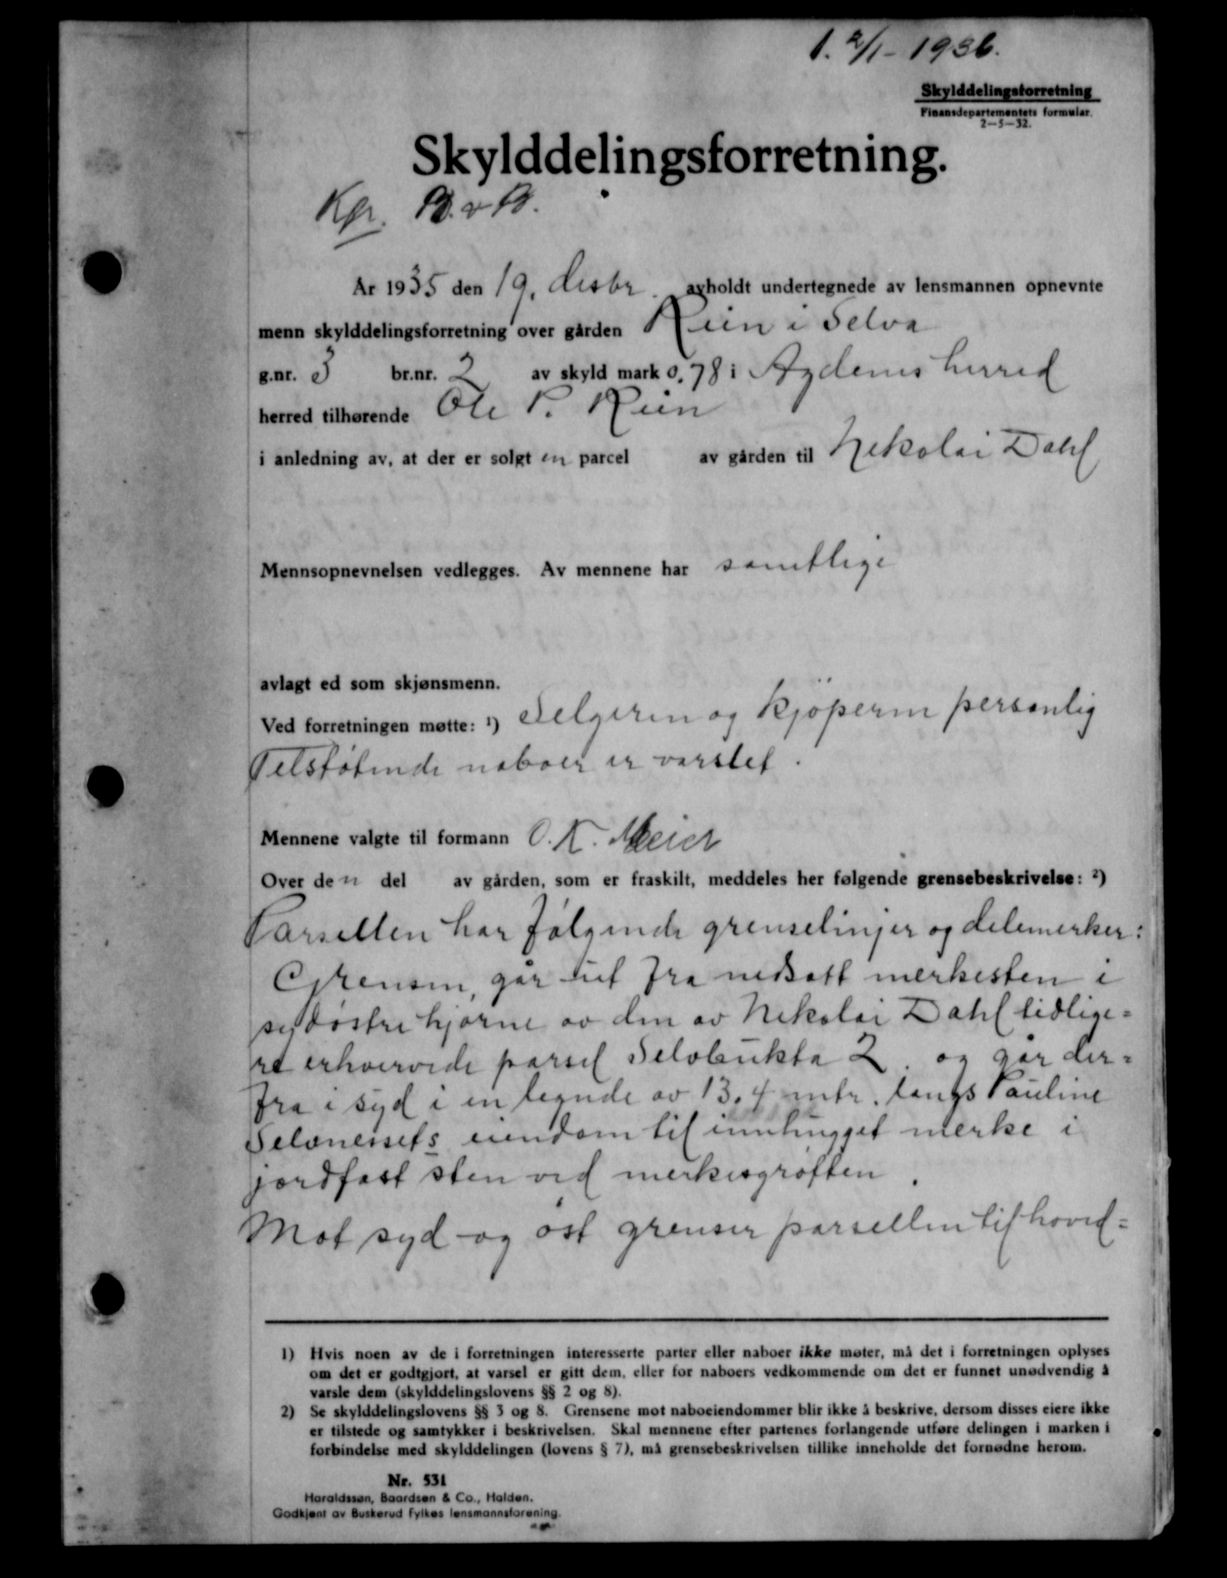 1. 2/1 - 1936.
Skylddelingsforretning
Finansdepartementets formular.
2—5—32.
Skylddelingsforretning.
År 1935 den 19. desbr. avholdt undertegnede av lensmannen opnevnte
menn skylddelingsforretning over gården Rein i Selva
g.nr. 3 br.nr. 2 av skyld mark 0,78 i Agdenes herred
herred tilhørende Ole P. Rein
i anledning av, at der er solgt en parcel av gården til Nikolai Dahl
Mennsopnevnelsen vedlegges. Av mennene har samtlige
avlagt ed som skjønsmenn.
Ved forretningen møtte: ¹) Selgeren og kjøperen personlig
Tilstøtende naboer er varslet.
Mennene valgte til formann O. K. Meier
Over den del av gården, som er fraskilt, meddeles her følgende grensebeskrivelse: ²)
Parsellen har følgende grenselinjer og delemerker:
Grensen, går ut fra nedsatt merkesten i
sydøstre hjørne av den av Nikolai Dahl tidlige=
re erhvervede parsel Selvbukta 2. og går der=
fra i syd i en lengde av 13.4 mtr. langs Pauline
Selnessets eiendom til innhugget merke i
jordfast sten ved merkesgrøften.
Mot syd og øst grenser parsellen til hoved=
1) Hvis noen av de i forretningen interesserte parter eller naboer ikke møter, må det i forretningen oplyses
om det er godtgjort, at varsel er gitt dem, eller for naboers vedkommende om det er funnet unødvendig å
varsle dem (skylddelingslovens §§ 2 og 8).
2) Se skylddelingslovens §§ 3 og 8. Grensene mot naboeiendommer blir ikke å beskrive, dersom disses eiere ikke
er tilstede og samtykker i beskrivelsen. Skal mennene efter partenes forlangende utføre delingen i marken i
forbindelse med skylddelingen (lovens § 7), må grensebeskrivelsen tillike inneholde det fornødne herom.
Nr. 531
Haraldssøn, Baardsen & Co., Halden.
Godkjent av Buskerud Fylkes lensmannsforening.